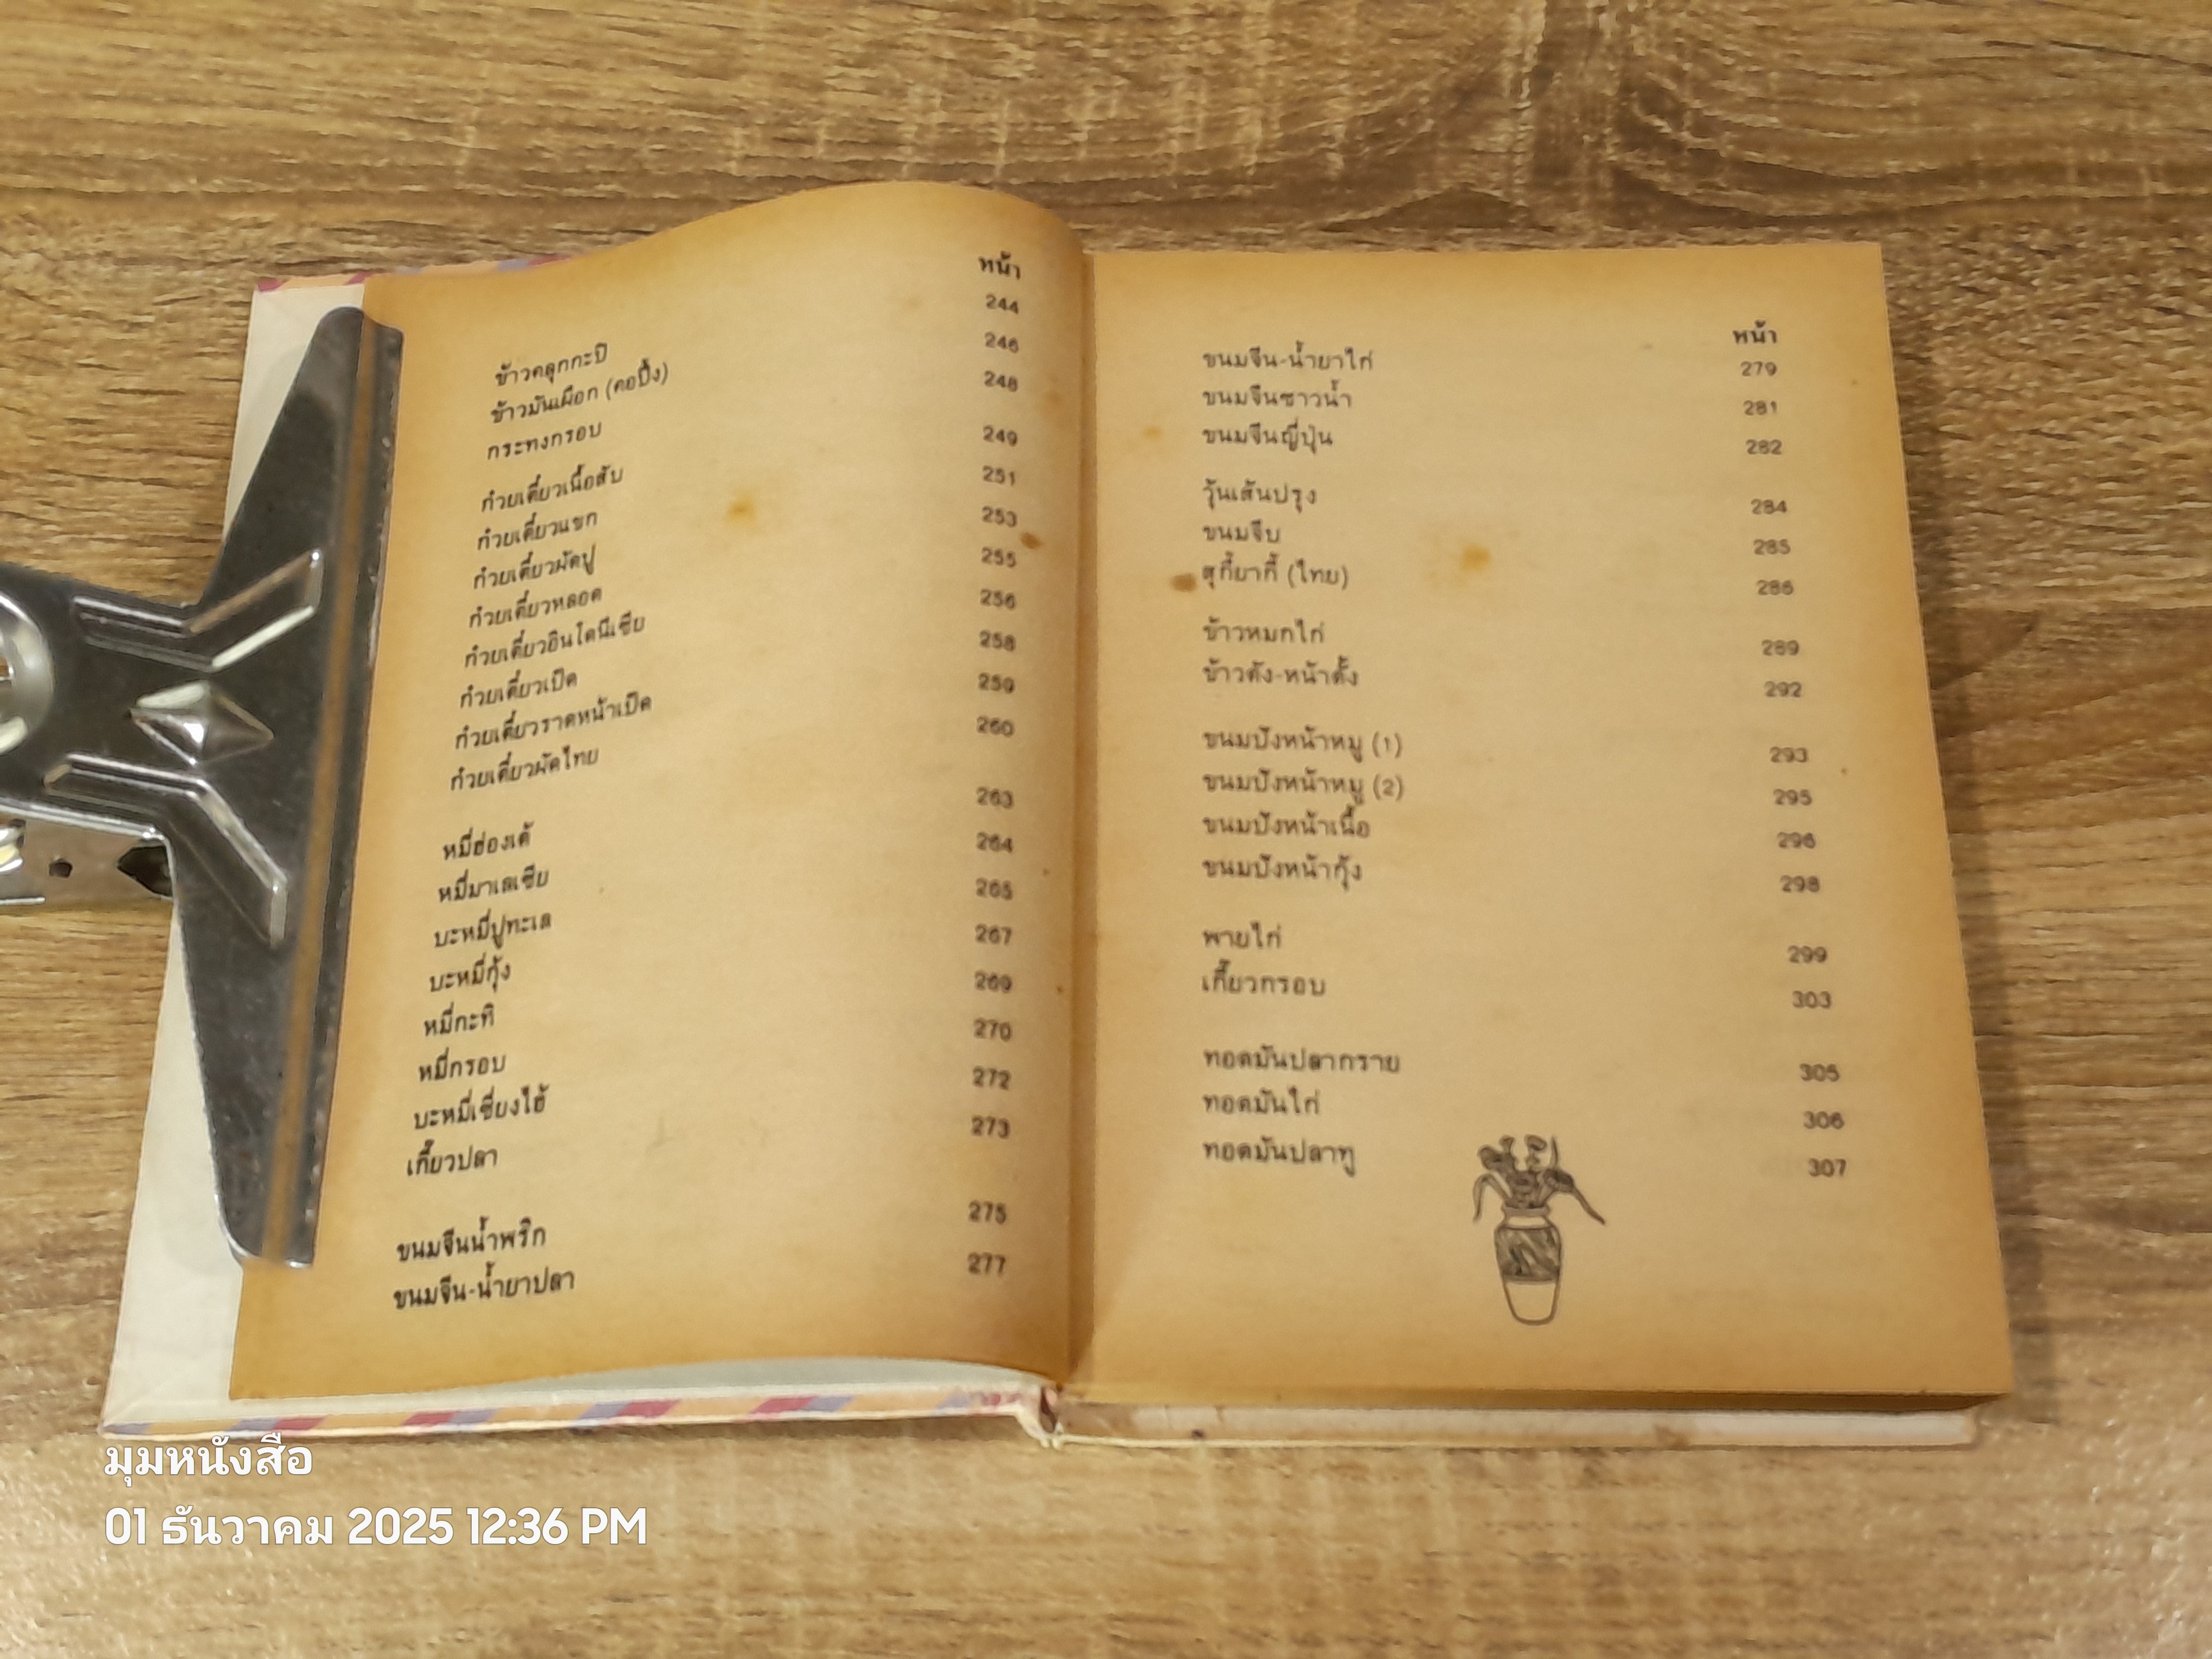 หน้า
ข้าวคลุกกะปิ 244
ข้าวมันเผือก (คอปิ้ง) 246
กระทงกรอบ 248
ก๋วยเตี๋ยวเนื้อสับ 249
ก๋วยเตี๋ยวแขก 251
ก๋วยเตี๋ยวผัดปู 253
ก๋วยเตี๋ยวหลอด 255
ก๋วยเตี๋ยวอินโดนีเซีย 256
ก๋วยเตี๋ยวเป็ด 258
ก๋วยเตี๋ยวราดหน้าเป็ด 259
ก๋วยเตี๋ยวผัดไทย 260
หมี่ฮ่องเต้ 263
หมี่มาเลเซีย 264
บะหมี่ปูทะเล 265
บะหมี่กุ้ง 267
หมี่กะทิ 269
หมี่กรอบ 270
บะหมี่เซี่ยงไฮ้ 272
เกี๊ยวปลา 273
ขนมจีนน้ำพริก 275
ขนมจีน-น้ำยาปลา 277
หน้า
ขนมจีน-น้ำยาไก่ 279
ขนมจีนซาวน้ำ 281
ขนมจีนญี่ปุ่น 282
วุ้นเส้นปรุง 284
ขนมจีบ 285
สุกี้ยากี้ (ไทย) 286
ข้าวหมกไก่ 289
ข้าวตัง-หน้าตั้ง 292
ขนมปังหน้าหมู (1) 293
ขนมปังหน้าหมู (2) 295
ขนมปังหน้าเนื้อ 296
ขนมปังหน้ากุ้ง 298
พายไก่ 299
เกี๊ยวกรอบ 303
ทอดมันปลากราย 305
ทอดมันไก่ 306
ทอดมันปลาทู 307
มุมหนังสือ
01 ธันวาคม 2025 12:36 PM